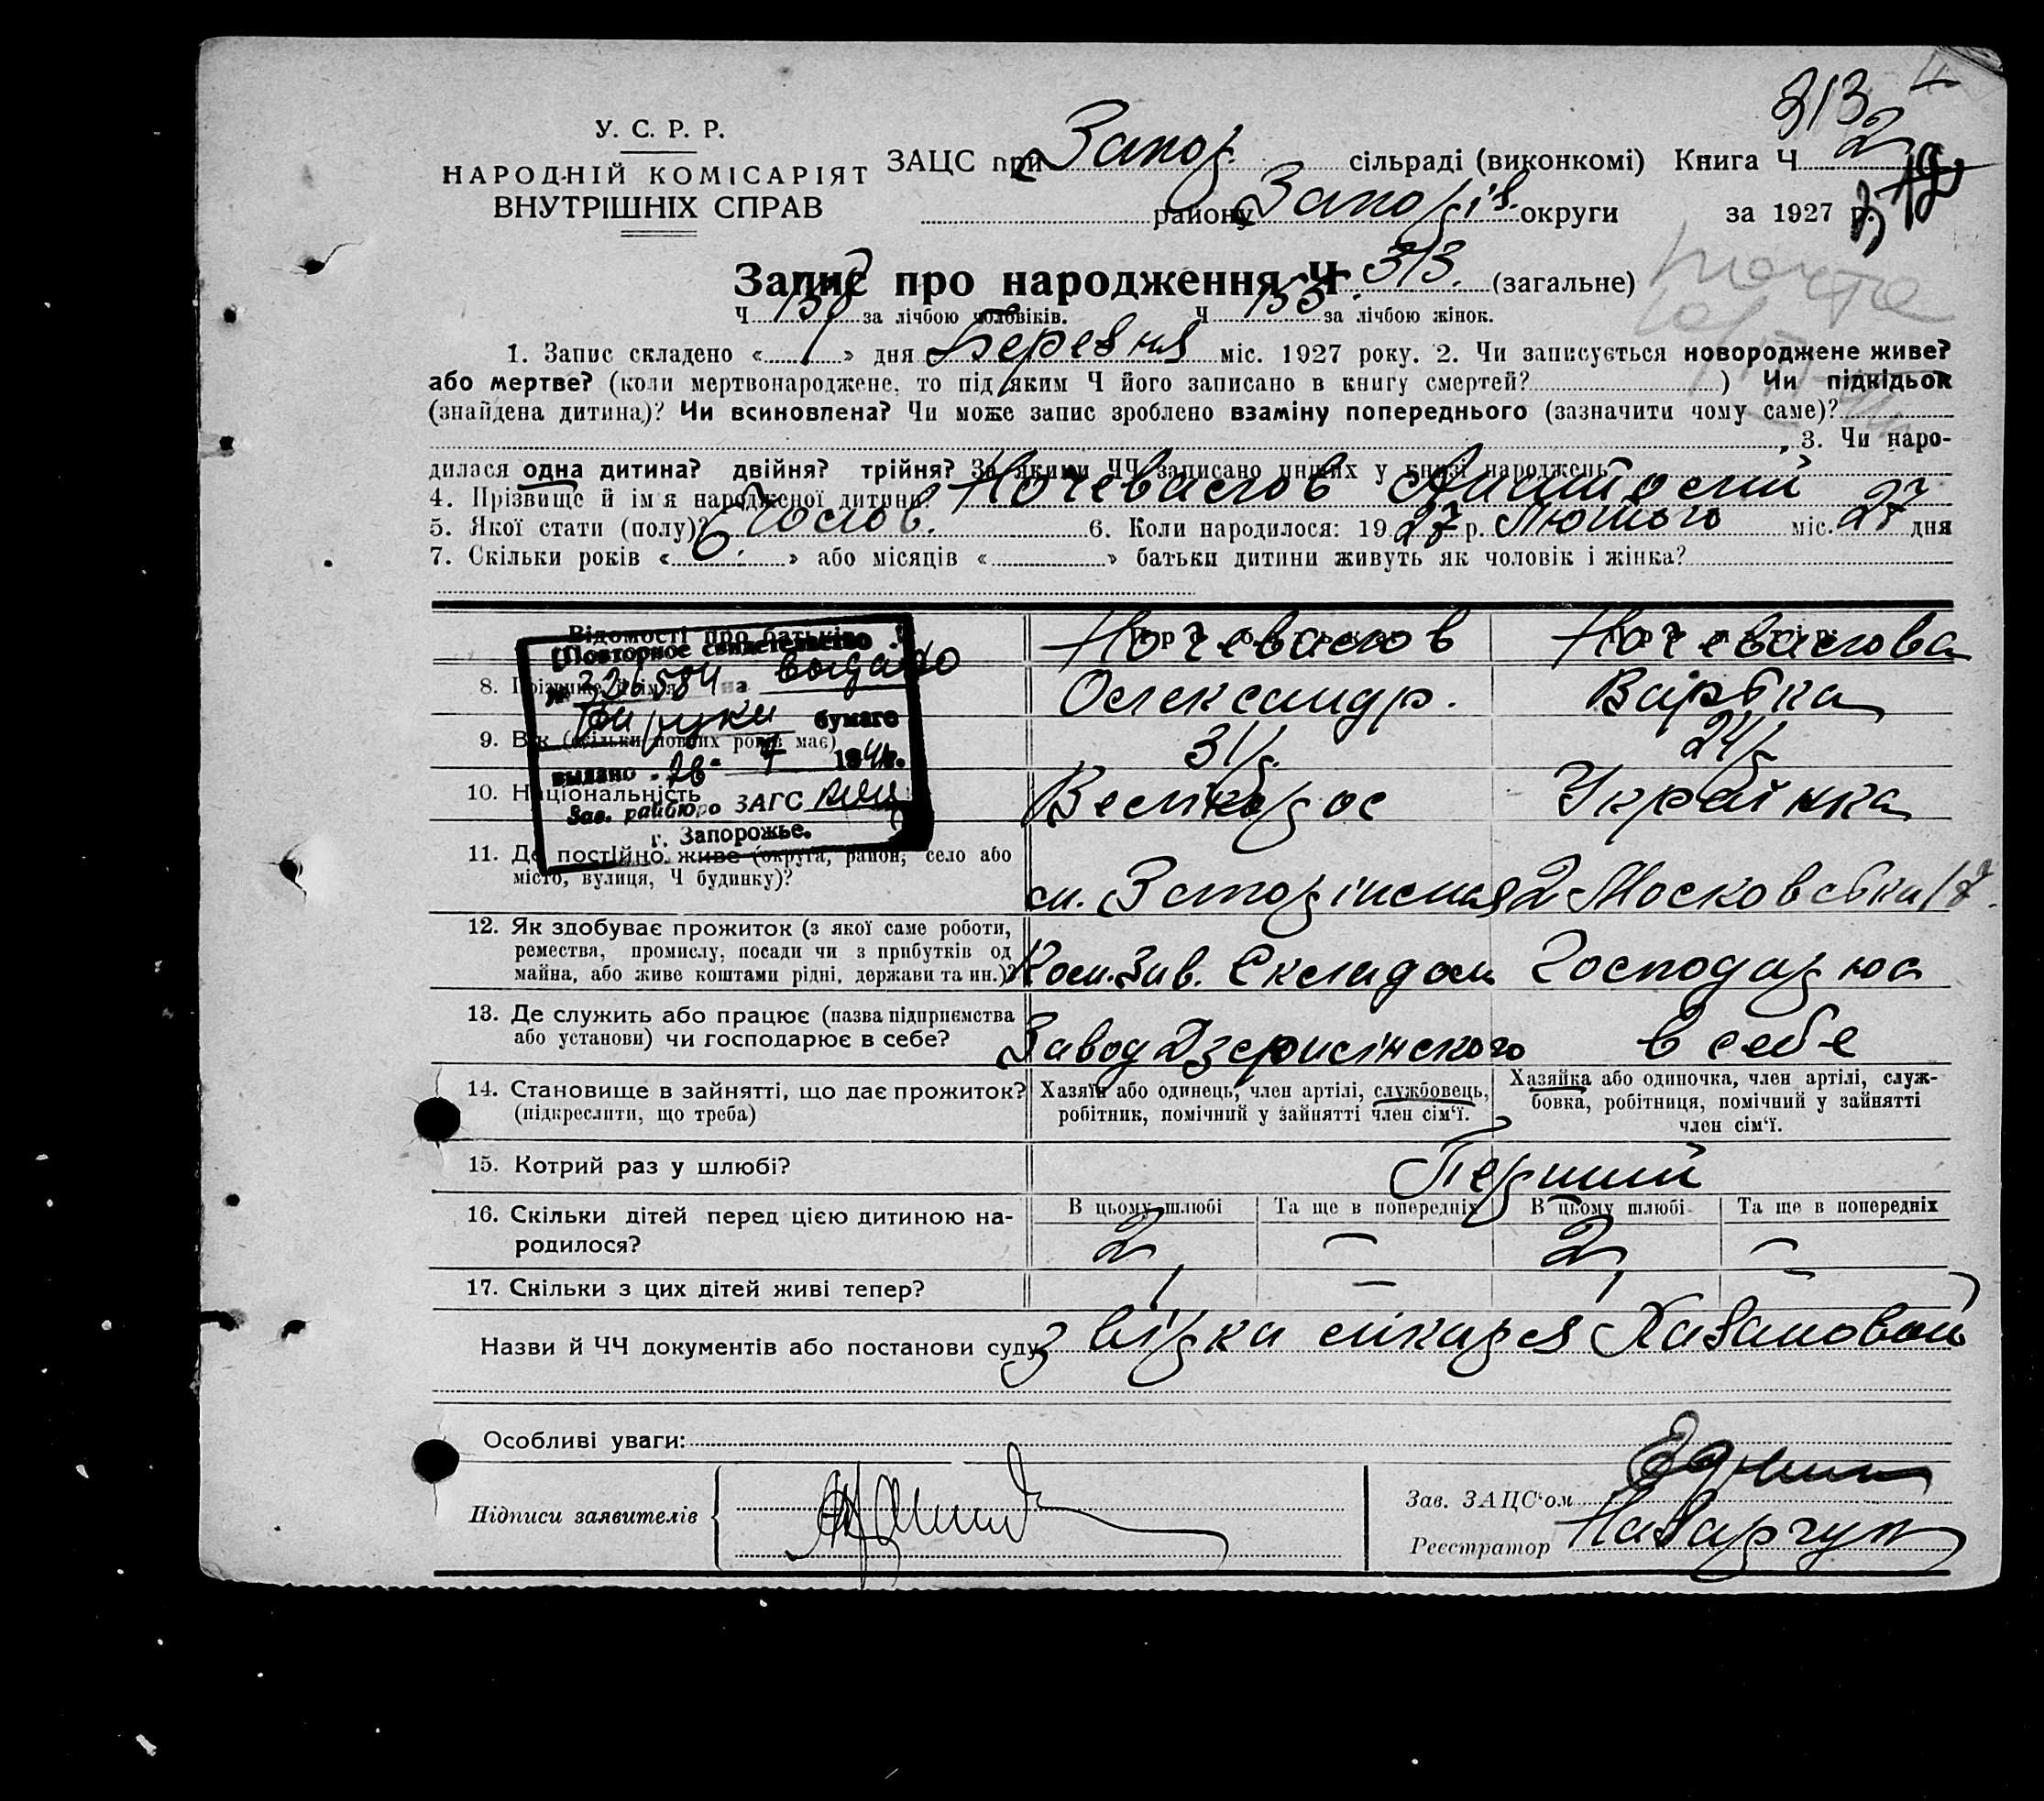 313
У. С. Р. Р.
НАРОДНІЙ КОМІСАРІЯТ
ВНУТРІШНІХ СПРАВ
ЗАЦС при Запор. сільраді (виконкомі) Книга Ч 2
району Запоріз. округи за 1927 р.
Запис про народження Ч 313. (загальне)
Ч за лічбою чоловіків. Ч 155 за лічбою жінок.
1. Запис складено « 1 » дня Березня міс. 1927 року. 2. Чи записується новороджене живе?
або мертве? (коли мертвонароджене, то під яким Ч його записано в книгу смертей? ) Чи підкідьок
(знайдена дитина)? Чи всиновлена? Чи може запис зроблено взаміну попереднього (зазначити чому саме)?
3. Чи наро-
дилася одна дитина? двійня? трійня? За якими ЧЧ записано инших у книзі народжень
4. Прізвище й ім'я народженої дитини? Анатолій
5. Якої стати (полу)? Чолов. 6. Коли народилося: 1927 р. Лютого міс. 27 дня
7. Скільки років « 6. » або місяців « » батьки дитини живуть як чоловік і жінка?
Відомості про батьків
Повторное свидетельство
№ на выдано
бумаге
выдано 194 г.
Зав. райбюро ЗАГС
г. Запорожье.
8. Прізвище й ім'я Олександр. Варька
9. Вік (скільки повних років має) 31 р. 24 р.
10. Національність Великорос Українка
11. Де постійно живе (округа, район, село або
місто, вулиця, Ч будинку)?
м. Запоріжжя 2 Московська 17
12. Як здобуває прожиток (з якої саме роботи,
ремества, промислу, посади чи з прибутків од
майна, або живе коштами рідні, держави та ин.)?
Зав. Складом Господарює
13. Де служить або працює (назва підприємства
або установи) чи господарює в себе?
Завод Дзержинського в себе
14. Становище в зайнятті, що дає прожиток?
(підкреслити, що треба)
Хазяїн або одинець, член артілі, службовець,
робітник, помічний у зайнятті член сім‘ї.
Хазяйка або одиночка, член артілі, служ-
бовка, робітниця, помічний у зайнятті
член сім‘ї.
15. Котрий раз у шлюбі? Перший
16. Скільки дітей перед цією дитиною на-
родилося?
В цьому шлюбі Та ще в попередніх В цьому шлюбі Та ще в попередніх
2 — 2 —
17. Скільки з цих дітей живі тепер? 1 — 1 —
Назви й ЧЧ документів або постанови суду лікаря
Особливі уваги:
Підписи заявителів
Зав. ЗАЦС‘ом
Реєстратор